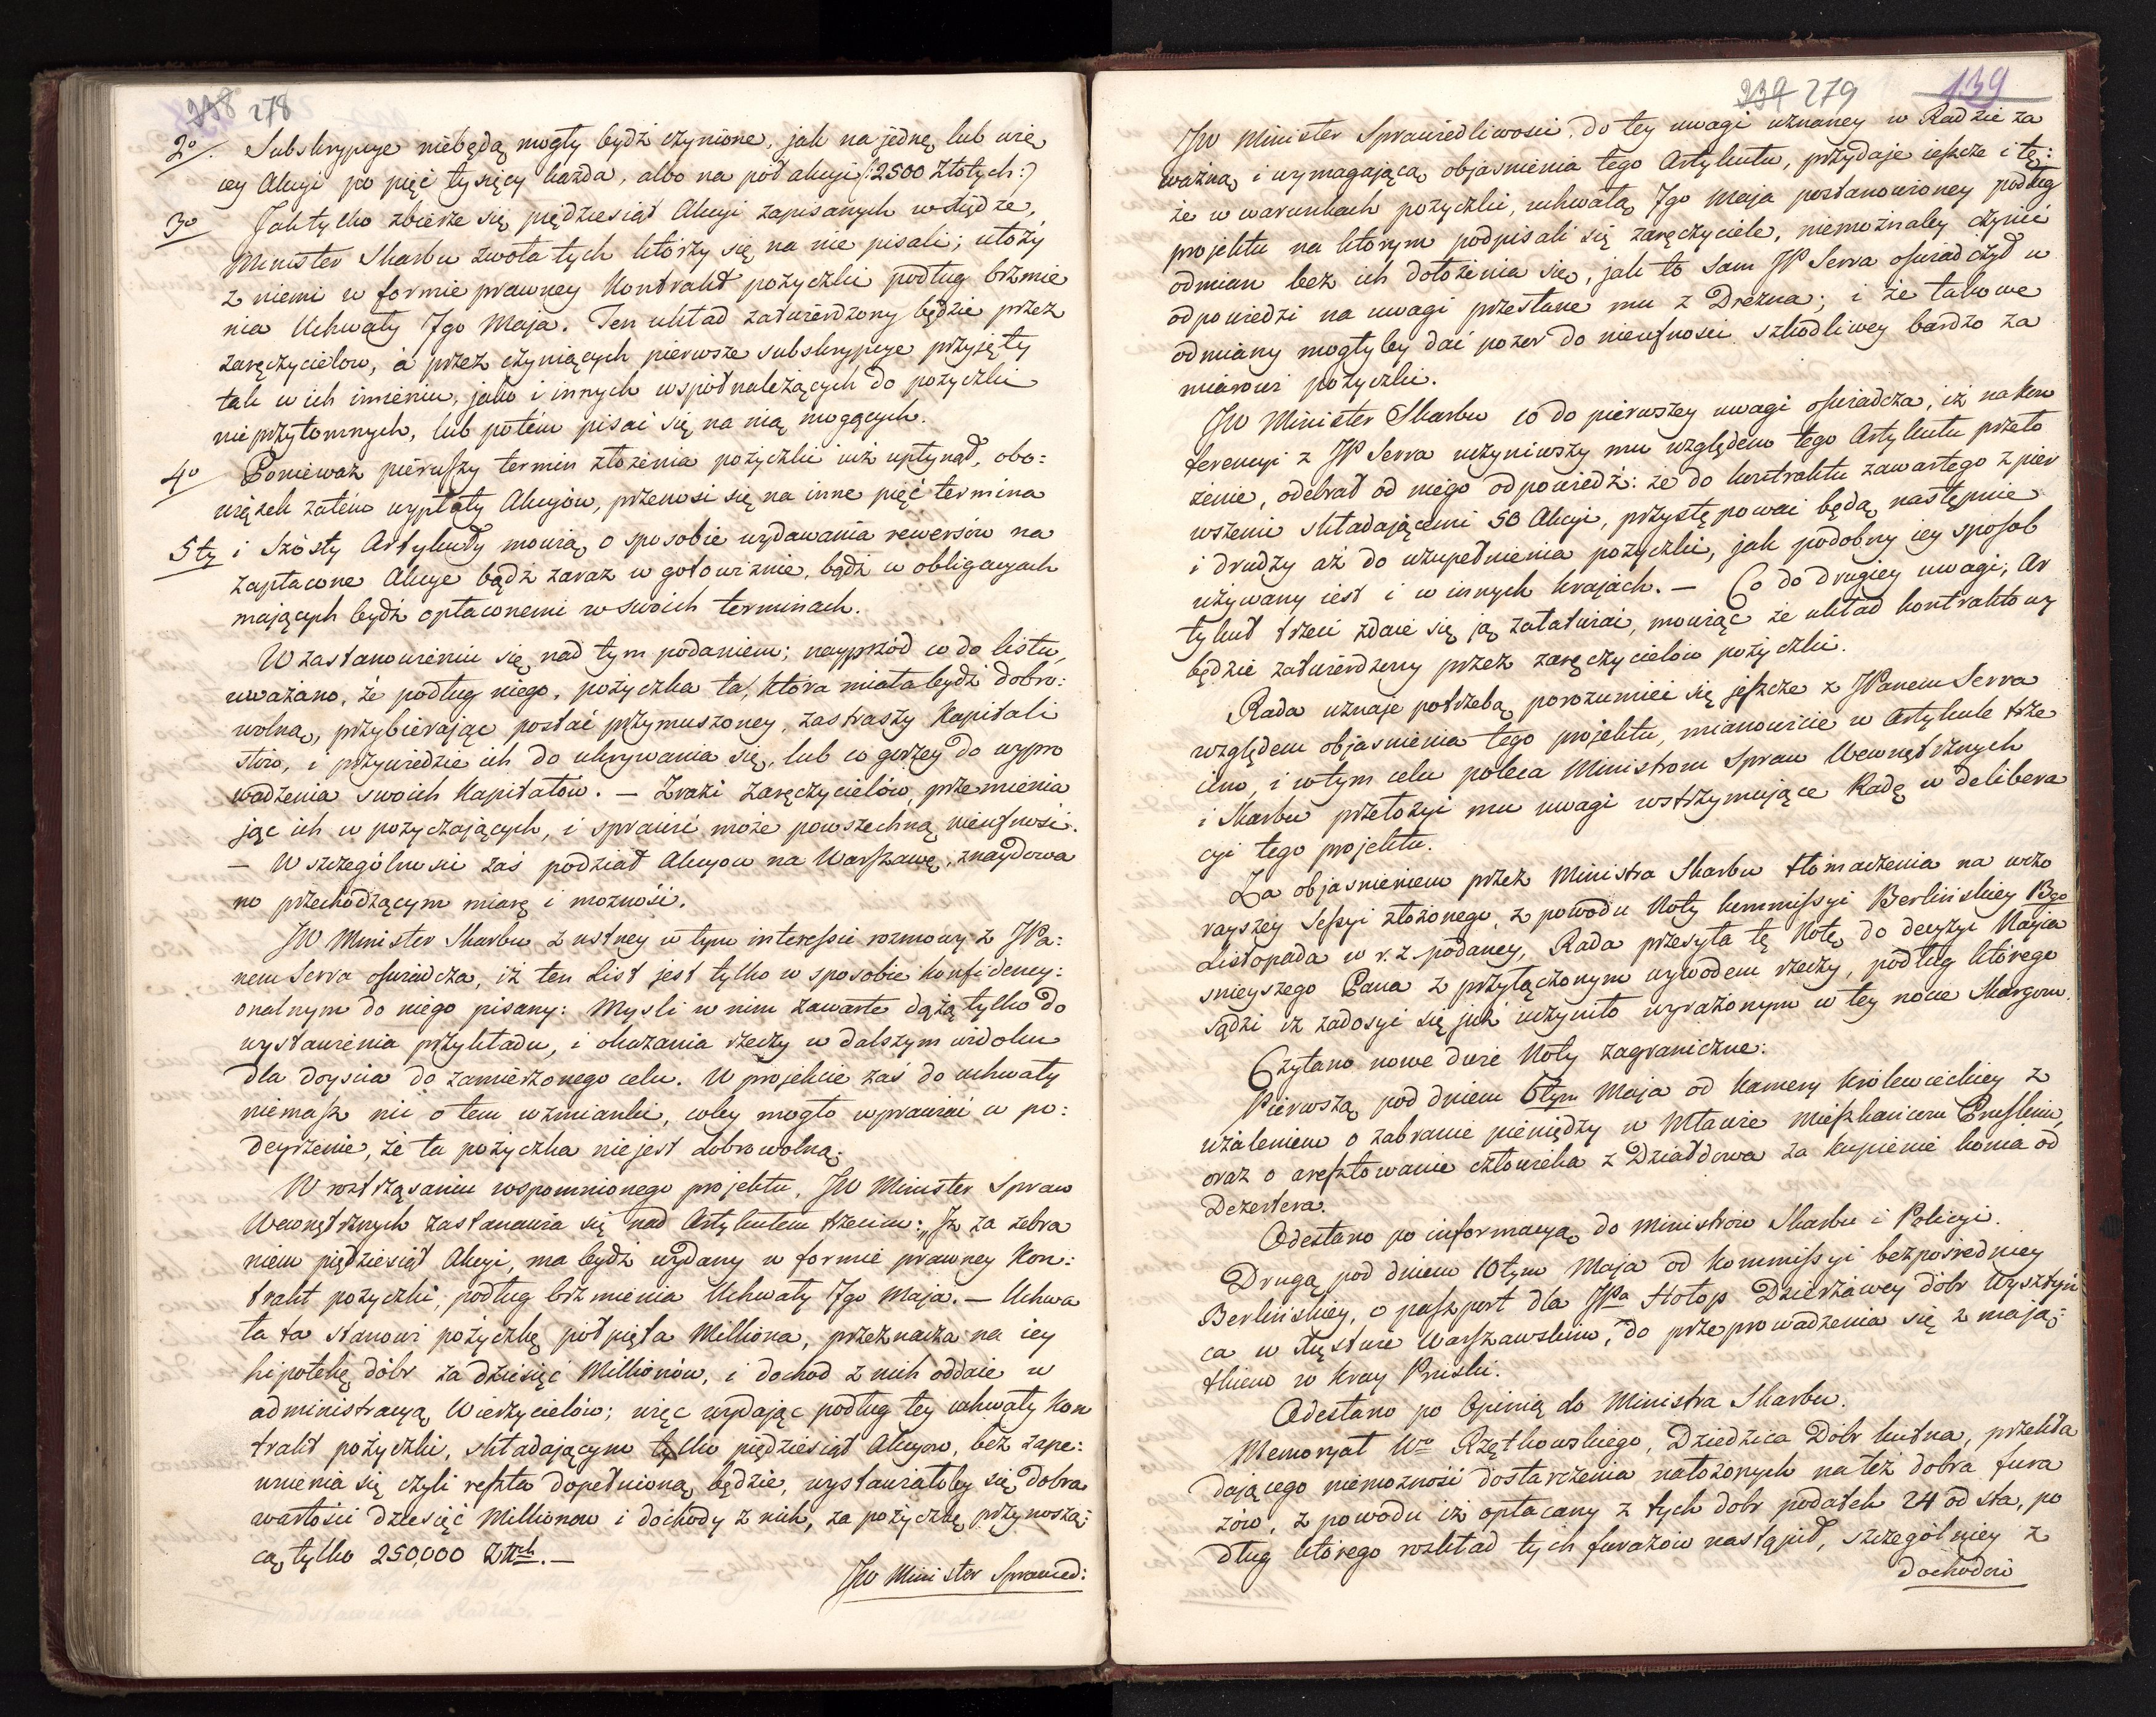 338 278
2o/. Subskrypcye niebędą mogły bydź czynione, jak na jednę lub wię
cey Akcyi po pięć tysięcy każda, albo na pół akcyi (:2500 Złotych:)
3o Jak tylko zbierze się pięćdziesiąt Akcyi zapisanych w Xiędze,
Minister Skarbu zwoła tych którzy się na nie pisali; ułoży
z niemi w formie prawney Kontrakt pożyczki podług brzmie
nia Uchwały 7go Maja. Ten układ zatwierdzony będzie przez
zaręczycielow, a przez czyniących pierwsze subskrypcye przyjęty
tak w ich imieniu, jako i innych wspołnależących do pożyczki
nieprzytomnych, lub potém pisać się na nią mogących.
4o Ponieważ piérwszy termin złożenia pożyczki już upłynął, obo:
wiązek zatém wypłaty Akcyów, przenosi się na inne pięć termina
5ty i Szósty Artykuły mowią o sposobie wydawania rewersów na
zapłacone Akcye bądź zaraz w gotowiznie, bądź w obligacyach
mających bydź opłaconemi w swoich terminach.
W zastanowieniu się nad tym podaniem; nayprzód co do listu,
uważano, że podług niego, pożyczka ta, która miała bydź dobro:
wolną, przybierając postać przymuszoney, zastraszy Kapitali
stów, i przywiedzie ich do ukrywania się, lub co gorzey do wypro
wadzenia swoich Kapitałów. — Zrazi zaręczycielów, przemienia
jąc ich w pożyczających, i sprawić może powszechną nieufność.
— W szczególności zaś podział Akcyow na Warszawę, znaydowa
no przechodzącym miarę i możność.
JW Minister Skarbu z ustney w tym interessie rozmowy z JPa:
nem Serra oświadcza, iż ten List jest tylko w sposobie konfidency:
onalnym do niego pisany: Mysli w nim zawarte dążą tylko do
wystawienia przykładu, i okazania rzeczy w dalszym widoku
dla doyscia do zamierzonego celu. W projekcie zaś do uchwały
niemasz nic o tem wzmianki, coby mogło wprawić w po:
deyrzenie, że ta pożyczka nie jest dobrowolną.
W roztrząsaniu wspomnionego projektu, JW Minister Spraw
Wewnętrznych zastanawia się nad Artykułem trzecim: „Iż za zebra
niem pięćdziesiąt Akcyi, ma bydź wydany w formie prawney Kon:
trakt pożyczki, podług brzmienia Uchwały 7go Maja. — Uchwa
ła ta stanowi pożyczkę półpięta Milliona, przeznacza na iey
hipotekę dóbr za dziesięć Millionów, i dochod z nich oddaie w
administracyą Wierzycielów; więc wydając podług tey uchwały Kon
trakt pożyczki, składającym tylko pięćdziesiąt Akcyow, bez zape:
wnienia się czyli reszta dopełnioną będzie, wystawiałoby się dobra
wartości dziesięć Millionow i dochody z nich, za pożyczkę przynoszą:
cą tylko 250,000 Złłch. —
JW Minister Sprawied:
239 279 139
JW Minister Sprawiedliwosci do tey uwagi uznaney w Radzie za
ważną i wymagającą objasnienia tego Artykułu, przydaje ieszcze i tę:
że w warunkach pożyczki, uchwałą 7go Maja postanowioney podług
projektu na którym podpisali się zaręczyciele, niemożnaby czynić
odmian bez ich dołożenia się, jak to sam JP Serra oświadczył w
odpowiedzi na uwagi przesłane mu z Drezna; i że takowe
odmiany mogłyby dać pozor do nieufności szkodliwey bardzo za
miarowi pożyczki.
JW Minister Skarbu co do pierwszey uwagi oświadcza, iż na kon
ferencyi z JP Serra uczyniwszy mu względem tego Artykułu przeło
żenie, odebrał od niego odpowiedź: że do kontraktu zawartego z pier
wszemi składającemi 50 Akcyi, przystępować będą następnie
i drudzy aż do uzupełnienia pożyczki, jak podobny iey sposob
używany iest i w innych krajach. — Co do drugiey uwagi, Ar
tykuł trzeci zdaie się ją załatwiać, mowiąc że układ kontraktowy
będzie zatwierdzony przez zaręczycielow pożyczki.
Rada uznaje potrzebą porozumieć się jeszcze z JPanem Serra
względem objasnienia tego projektu, mianowicie w Artykule trze
cim, i w tym celu poleca Ministrom Spraw Wewnętrznych
i Skarbu przełożyć mu uwagi wstrzymujące Radę w delibera
cyi tego projektu.
Za objasnieniem przez Ministra Skarbu tłomaczenia na wczo
rayszey Sessyi złożonego, z powodu Noty kommissyi Berlińskiey 13go
Listopada w r.z. podaney, Rada przesyła tę Notę do decyzyi Nayia
snieyszego Pana z przyłączonym wywodem rzeczy, podług którego
sądzi iż zadosyć się już uczyniło wyrażonym w tey nocie skargom.
Czytano nowe dwie Noty zagraniczne:
Piérwszą pod dniem 6tym Maja od Kamery Królewieckiey z
użaleniem o zabranie pieniędzy w Mławie mieszkańcom Prusskim,
oraz o aresztowanie człowieka z Działdowa za kupienie konia od
Dezertera.
Odesłano po informacyą do Ministrów Skarbu i Policyi.
Drugą pod dniem 10tym Maja od Kommissyi bezposredniey
Berlińskiey, o paszport dla JPa Hotop Dzierżawcy dóbr Wysztyń
ca w Xięstwie Warszawskim, do przeprowadzenia się z mają:
tkiem w Kray Pruski.
Odesłano po Opinią do Ministra Skarbu.
Memoryał Wo Rzętkowskiego, Dziedzica Dóbr Kutna, przekła
dającego niemożność dostarczenia nałożonych na też dobra fura
żów, z powodu iż opłacany z tych dobr podatek 24 od sta, po
dług którego rozkład tych furażów nastąpił, szczególniey z
dochodów